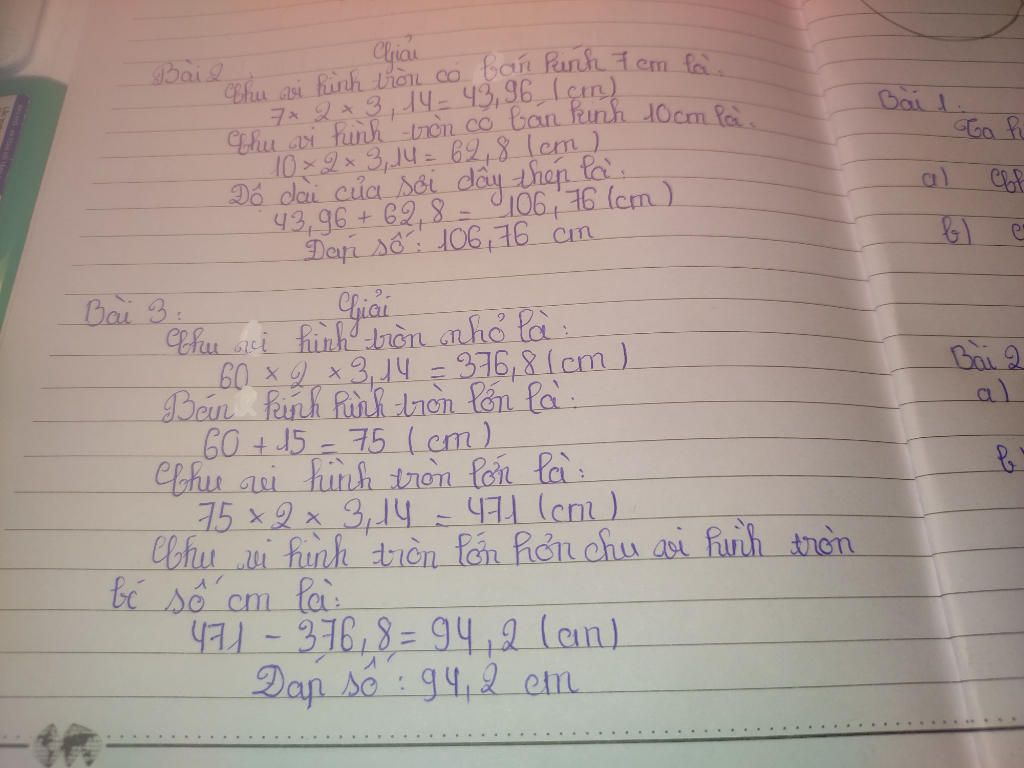 Giải
Bài 2
Chu vi hình tròn có bán kính 7 cm là:
7 × 2 × 3,14 = 43,96 (cm)
Chu vi hình tròn có bán kính 10cm là:
10 × 2 × 3,14 = 62,8 (cm)
Độ dài của sợi dây thép là:
43,96 + 62,8 = 106,76 (cm)
Đáp số: 106,76 cm
Bài 3: Giải
Chu vi hình tròn nhỏ là:
60 × 2 × 3,14 = 376,8 (cm)
Bán kính hình tròn lớn là:
60 + 15 = 75 (cm)
Chu vi hình tròn lớn là:
75 × 2 × 3,14 = 471 (cm)
Chu vi hình tròn lớn hơn chu vi hình tròn
bé số cm là:
471 - 376,8 = 94,2 (cm)
Đáp số: 94,2 cm
Bài 1.
Ta
a)
b)
Bài 2
a)
b)